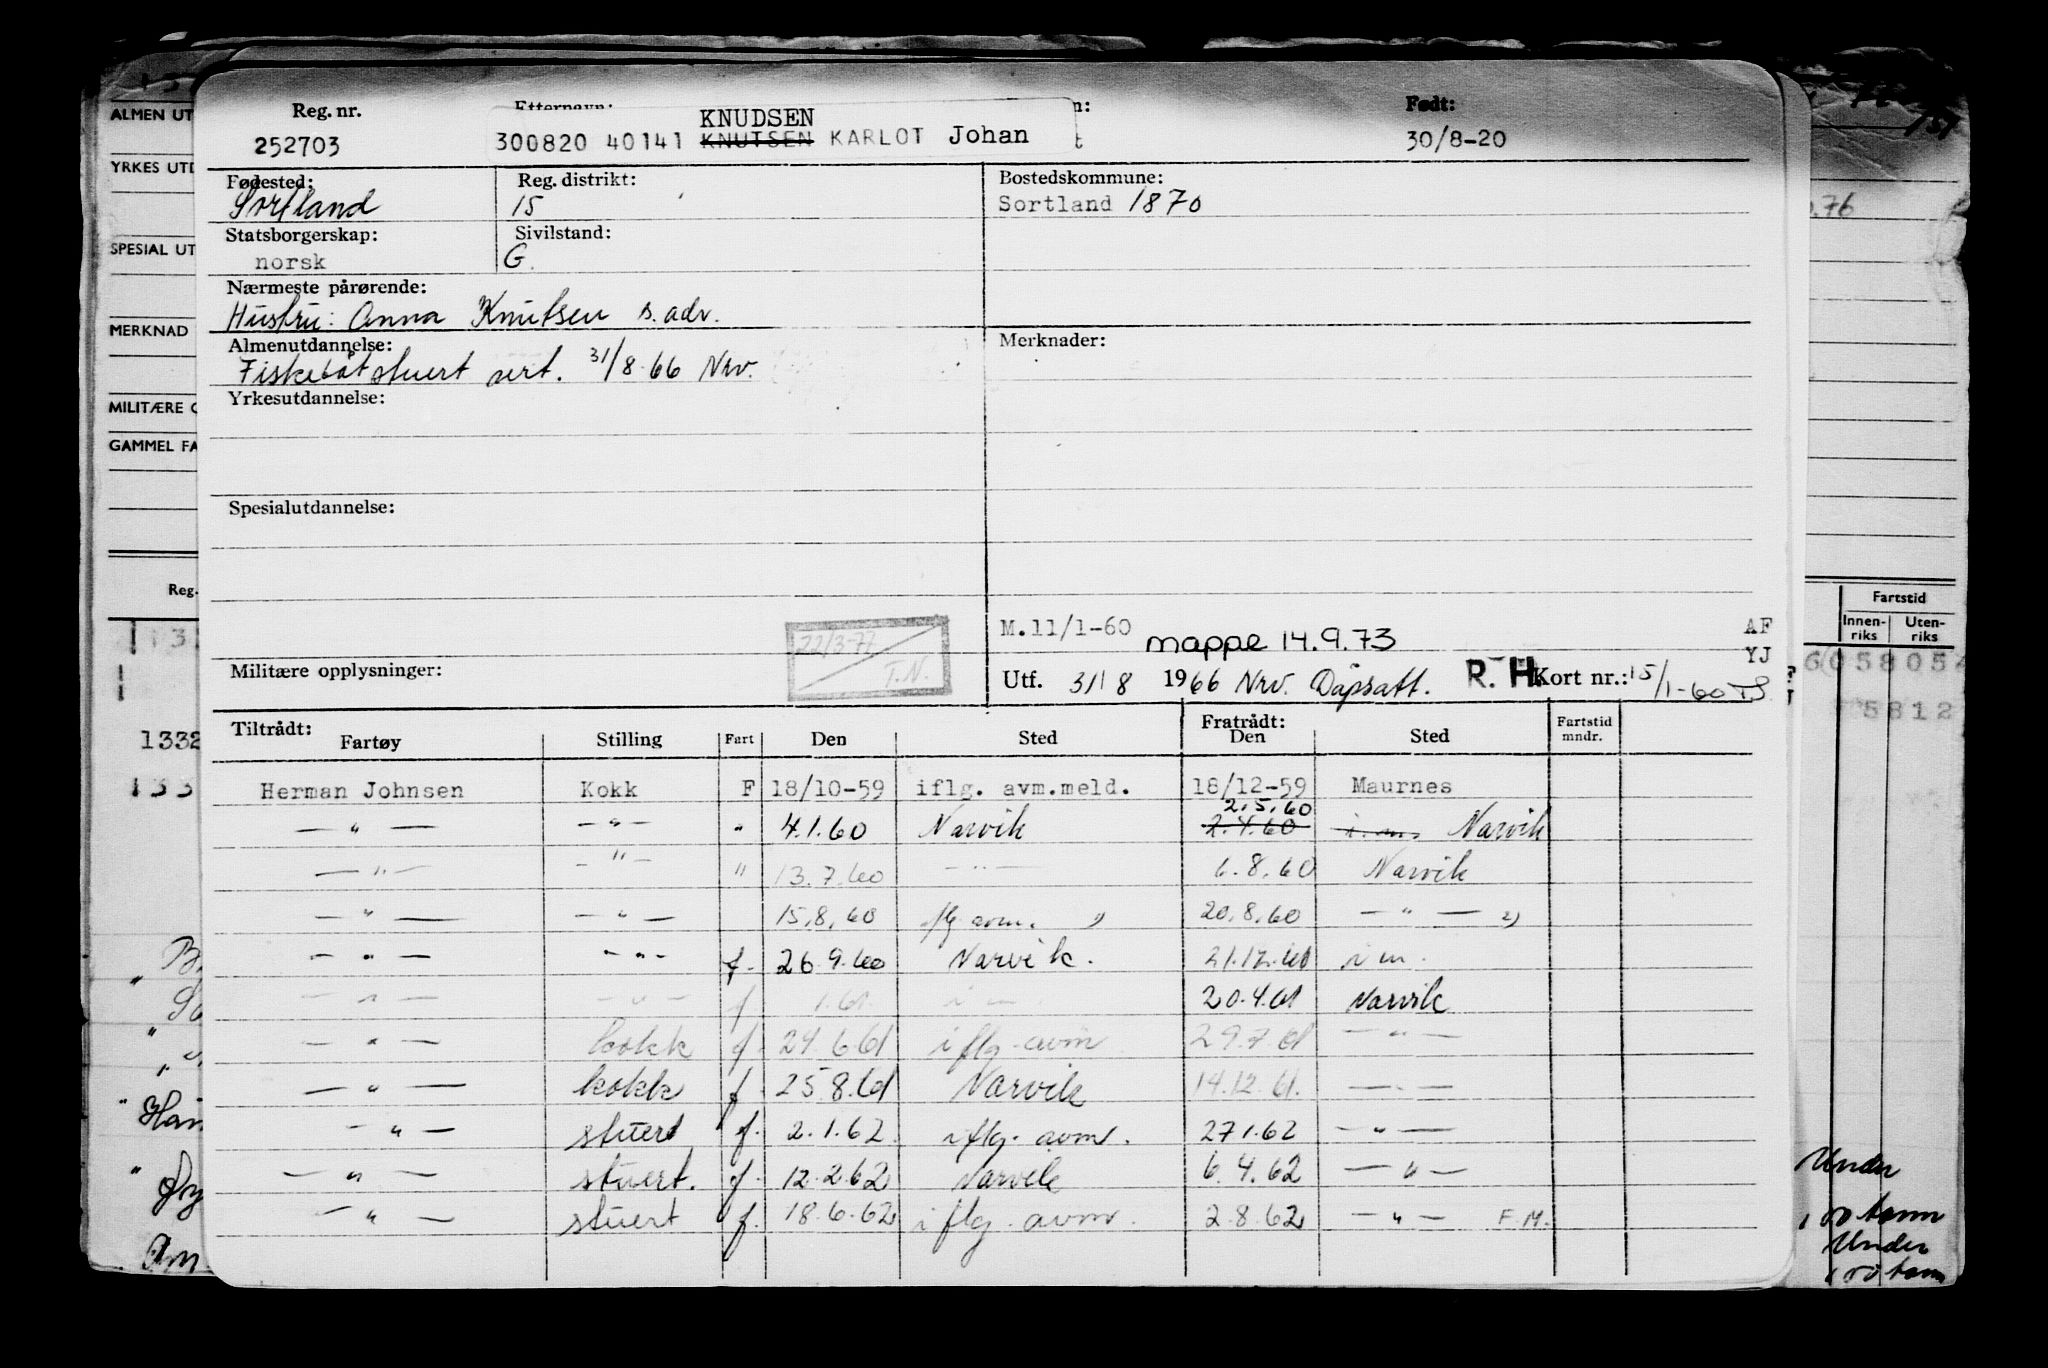 Reg. nr. Etternavn: n: Født:
252703 300820 40141 KNUDSEN KNUTSEN KARLOT Johan t 30/8-20
Fødested: Reg. distrikt: Bostedskommune:
Sortland 15 Sortland 1870
Statsborgerskap: Sivilstand:
norsk G.
Nærmeste pårørende:
Hustru: Anna Knutsen s. adr.
Almenutdannelse: Merknader:
Fiskebåtstuert sert. 31/8-66 Nrv.
Yrkesutdannelse:
Spesialutdannelse:
22/3-77
T.N.
M.11/1-60 mappe 14.9.73 AF
YJ
Militære opplysninger: Utf. 31/8 1966 Nrv. Dåpsatt. R.H. Kort nr.: 15/1-60 TS
Tiltrådt: Fratrådt: Fartstid
Fartøy Stilling Fart Den Sted Den Sted mndr.
Herman Johnsen Kokk F 18/10-59 iflg. avm.meld. 18/12-59 Maurnes
2.5.60
— " — — " — " 4.1.60 Narvik 2.4.60 i.m. Narvik
— " — — " — " 13.7.60 — " — 6.8.60 Narvik
— " — — " — 15.8.60 iflg avm. 20.8.60 — " —
— " — — " — f. 26.9.60 Narvik. 21.12.60 i m.
— " — — " — f 1.61. i m. 20.4.61 Narvik
— " — kokk f. 24.6.61 iflg. avm 29.7.61 — " —
— " — kokk f. 25.8.61 Narvik 14.12.61. — " —
— " — stuert f. 2.1.62. iflg. avm. 27.1.62 — " —
— " — stuert. f. 12.2.62 Narvik 6.4.62 — " —
— " — stuert f. 18.6.62 iflg. avm. 2.8.62 — " — F.M.
ALMEN UT
YRKES UTD
SPESIAL UT
MERKNAD
MILITÆRE O
GAMMEL FA
Reg.
1332
133
Han
.76
Fartstid
Innen-riks Uten-riks
5812
Under
100 tonn
Under
100 tonn